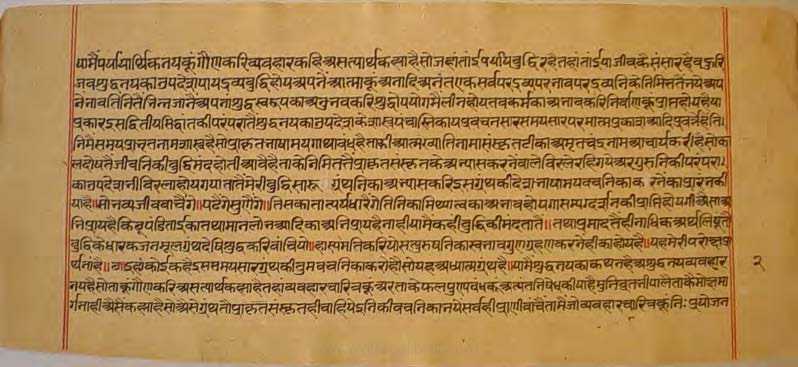 यामैंपर्यायार्थिकनयकूंगौणकरिव्यवहारकहिअसत्यार्थकह्याहैसोजहांतांईपर्यायबुद्धिरहैतहांतांईयाजीवकैसंसारहैबहुरि
जवशुद्धनयकाउपदेशपायद्रव्यबुद्धिहोयअपनेंआत्माकूंअनादिअनंतएकसर्वपरद्रव्यपरभावपरद्रव्यनिकेनिमित्ततैंभयेअप
नेभावतिनितैंभिन्नजानेअपनाशुद्धस्वरूपकाअनुभवकरिशुद्धोपयोगमैंलीनहोयतवकर्मकाअभावकरिनिर्वाणकूंप्राप्तहोयहैया
प्रकारइसद्वितीयसिद्धांतकीपरंपरातैंशुद्धनयकाउपदेशकेशास्त्रपंचास्तिकायप्रवचनसारसमयसारपरमात्मप्रकाशआदिप्रवर्त्तेहैंति
निमैंसमयप्राभृतनामशास्त्रहैसोप्राकृतभाषामयगाथाबंधहैताकीआत्मख्यातिनामासंस्कृतटीकाअमृतचंद्रनामआचार्यकरीहैसोका
लदोषतैंजीवनिकीबुद्धिमंदहोतीआवैहैताकेनिमित्ततैंप्राकृतसंस्कृतकेअभ्यासकरनेंवालेविरलेरहिगयेअरगुरुनिकीपरंपरा
काउपदेशभीविरलाहोयगयातातैंमेरीबुद्धिसारूग्रंथनिकाअभ्यासकरिइसग्रंथकीदेशभाषामयवचनिकाकरनेंकाप्रारंभकी
याहै॥सोभव्यजीववांचैंगे॥पढैंगेसुणैंगे॥तिसकातात्पर्यधारैंगेतिनिकामिथ्यात्वकाअभावहोयगासम्यग्दर्शनकीप्राप्तिहोयगीऐसाअ
भिप्रायहैकिछूपंडिताईकातथामानलोभआदिकाअभिप्रायहैनाहीयामैंकहींबुद्धिकीमंदतातैं॥तथाप्रमादतैंहीनाधिकअर्थलिषूंतौ
बुद्धिकेधारकजनमूलग्रंथदेषिशुद्धकरिवांचियो॥हास्यमतिकरियोसत्पुरुषनिकास्वभावगुणग्रहणकरनेंहीकाहोयहै॥यहमेरीपरोक्षप्रा
र्थनाहै॥इहांकोईकहैइससमयसारग्रंथकीतुमवचनिकाकरोहौसोयहअध्यात्मग्रंथहै॥यामैंशुद्धनयकाकथनहैअशुद्धनयव्यवहार
नयहैसोताकूंगौणकरिअसत्यार्थकह्याहैतहांव्यवहारचारित्रकूंअरताकेफलपुण्यबंधकूंअत्यंतनिषेधकीयाहैमुनिव्रतभीपालैताकैमोक्षमा
र्गनाहीऐसैंकह्याहैसोऐसेग्रंथतौप्राकृतसंस्कृतहीचाहियेइनिकीवचनिकाभयेसर्वहीप्राणीवांचैंतामैंजोव्यवहारचारित्रकूंनिःप्रयोजन
२